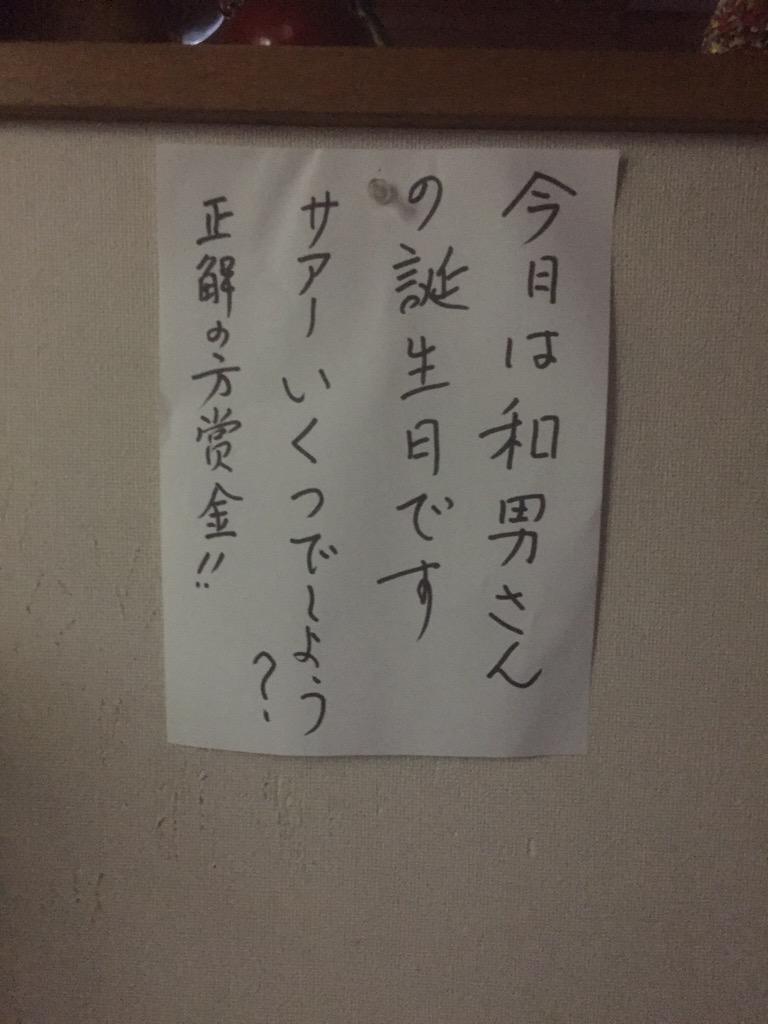 今日は和男さん
の誕生日です
サアーいくつでしよう
?
正解の方賞金!!